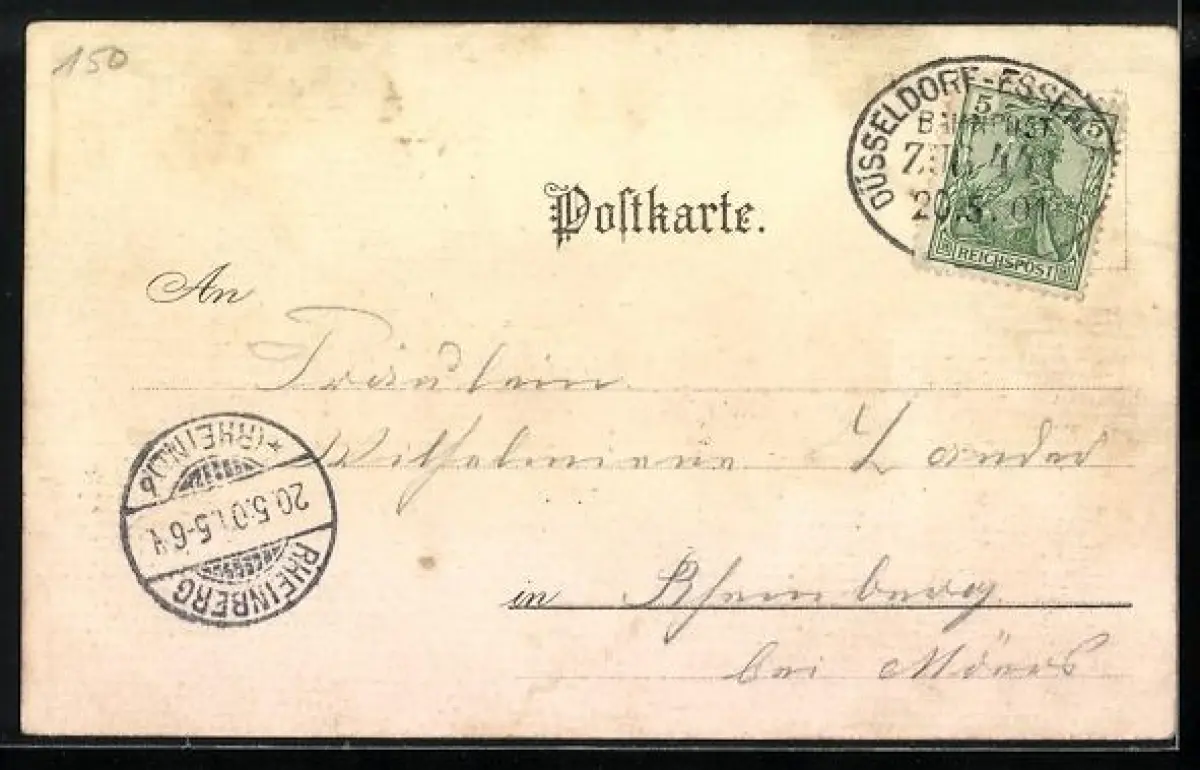 150
DÜSSELDORF-ESSEN
BAHNPOST
ZUG
20.5.01
5 5
REICHSPOST
Postkarte.
An
Fräulein
Wilhelmiene Zander
in Rheinberg
bei Mörs
*(RHEINL)b
20.5.01.5-6N.
RHEINBERG